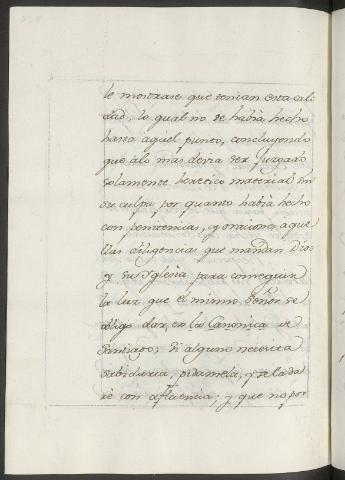 le mostrase que tenian esta cali
dad, lo qual no se habia hecho
hasta aquel punto, concluyendo
que alo mas devia ser juzgado
solamente heretico material sin
su culpa por quanto habia hecho
con penitencias, y oraciones aque
llas diligencias que mandan Dios
y su Yglesia para conseguir
la luz que el mismo Señor se
obligó dar, en la Canonica de
Santiago; Si alguno necesita
sabiduria, pidamela, y se la da
ré con afluencia; y que no por